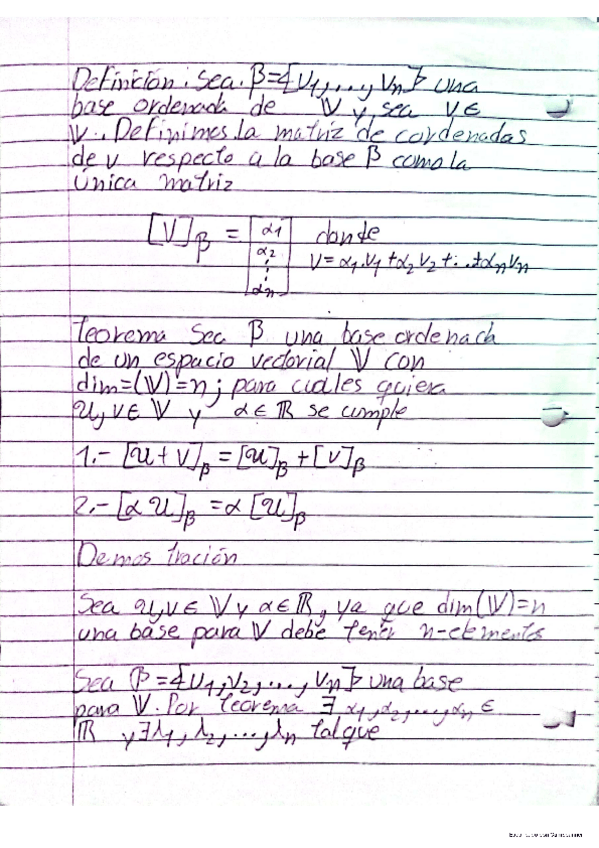 Definición. Sea. β={v1,...,vn} una
base ordenada de V y sea v∈
V. Definimos la matriz de cordenadas
de v respecto a la base β como la
única matriz
[V]β = [α1 α2 ⋮ αn] donde
v=α1.v1+α2v2+...+αnvn
Teorema Sea β una base ordenada
de un espacio vectorial V con
dim=(V)=n; para cuales quiera
u,v∈V y α∈ℝ se cumple
1.- [u+v]β=[u]β+[v]β
2.- [αu]β=α[u]β
Demostración
Sea u,v∈V y α∈ℝ, ya que dim(V)=n
una base para V debe tener n-elementos
Sea β={v1,v2,...,vn} una base
para V. Por teorema ∃ α1,α2,...,αn∈
ℝ y ∃λ1,λ2,...,λn tal que